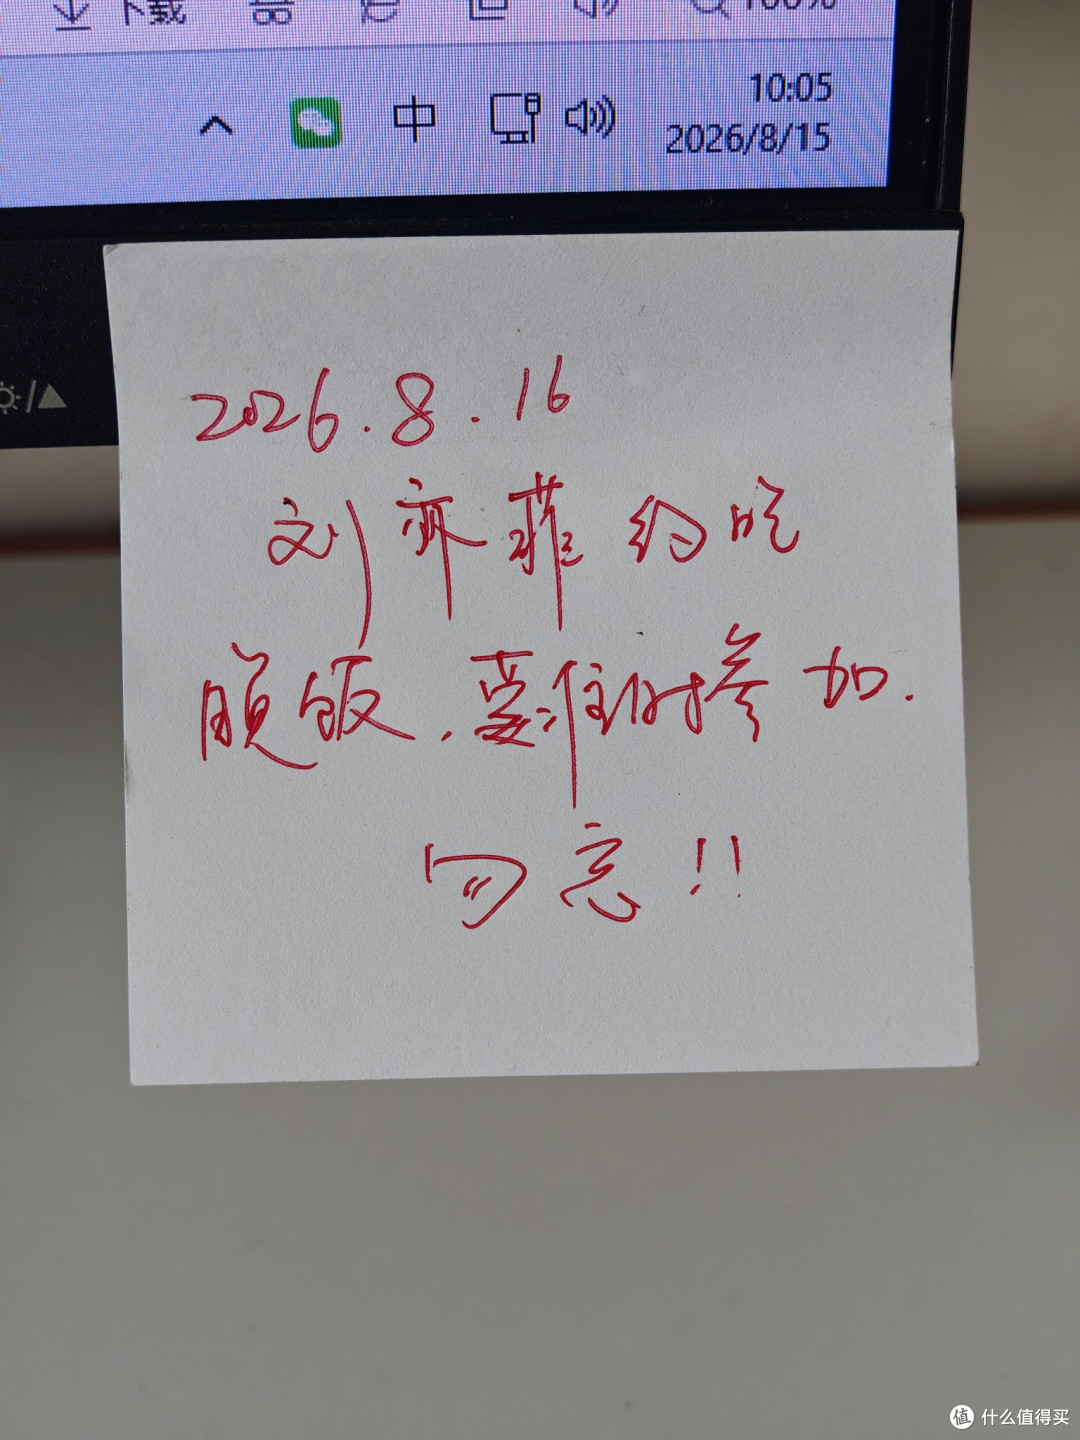 下载
100%
中
10:05
2026/8/15
2026.8.16
刘亦菲约吃
顿饭，要准时参加.
勿忘!!
值 什么值得买